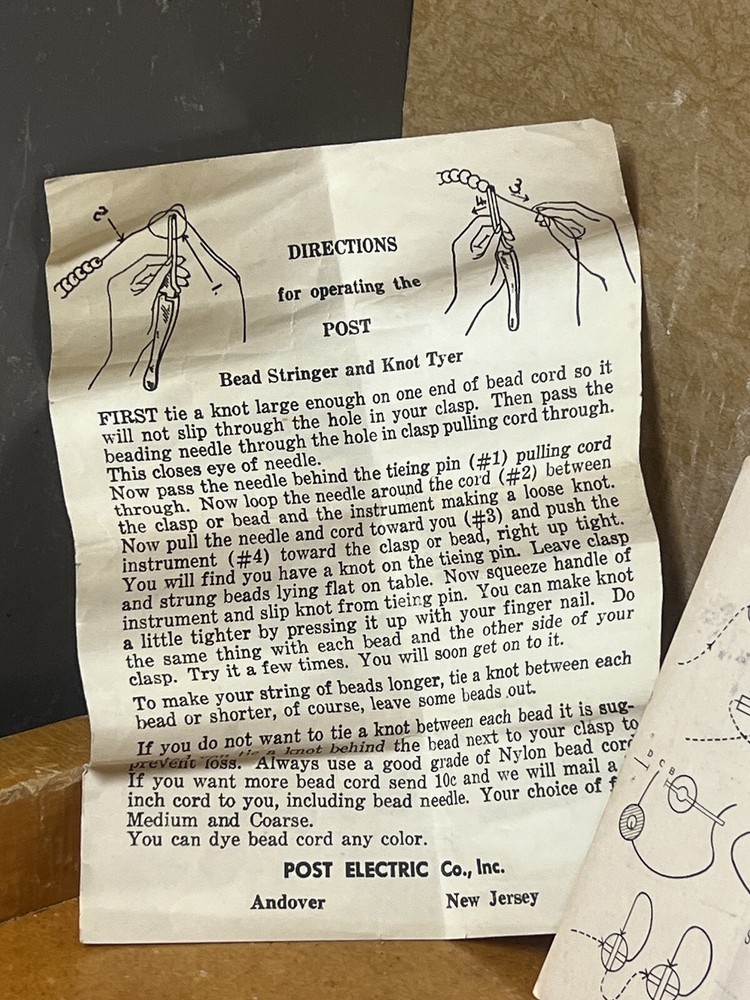 2
1
4
3
DIRECTIONS
for operating the
POST
Bead Stringer and Knot Tyer
FIRST tie a knot large enough on one end of bead cord so it
will not slip through the hole in your clasp. Then pass the
beading needle through the hole in clasp pulling cord through.
This closes eye of needle.
Now pass the needle behind the tieing pin (#1) pulling cord
through. Now loop the needle around the cord (#2) between
the clasp or bead and the instrument making a loose knot.
Now pull the needle and cord toward you (#3) and push the
instrument (#4) toward the clasp or bead, right up tight.
You will find you have a knot on the tieing pin. Leave clasp
and strung beads lying flat on table. Now squeeze handle of
instrument and slip knot from tieing pin. You can make knot
a little tighter by pressing it up with your finger nail. Do
the same thing with each bead and the other side of your
clasp. Try it a few times. You will soon get on to it.
To make your string of beads longer, tie a knot between each
bead or shorter, of course, leave some beads out.
If you do not want to tie a knot between each bead it is sug-
tie a knot behind the bead next to your clasp to
prevent loss. Always use a good grade of Nylon bead cord
If you want more bead cord send 10c and we will mail a
inch cord to you, including bead needle. Your choice of
Medium and Coarse.
You can dye bead cord any color.
POST ELECTRIC Co., Inc.
Andover New Jersey
D C B